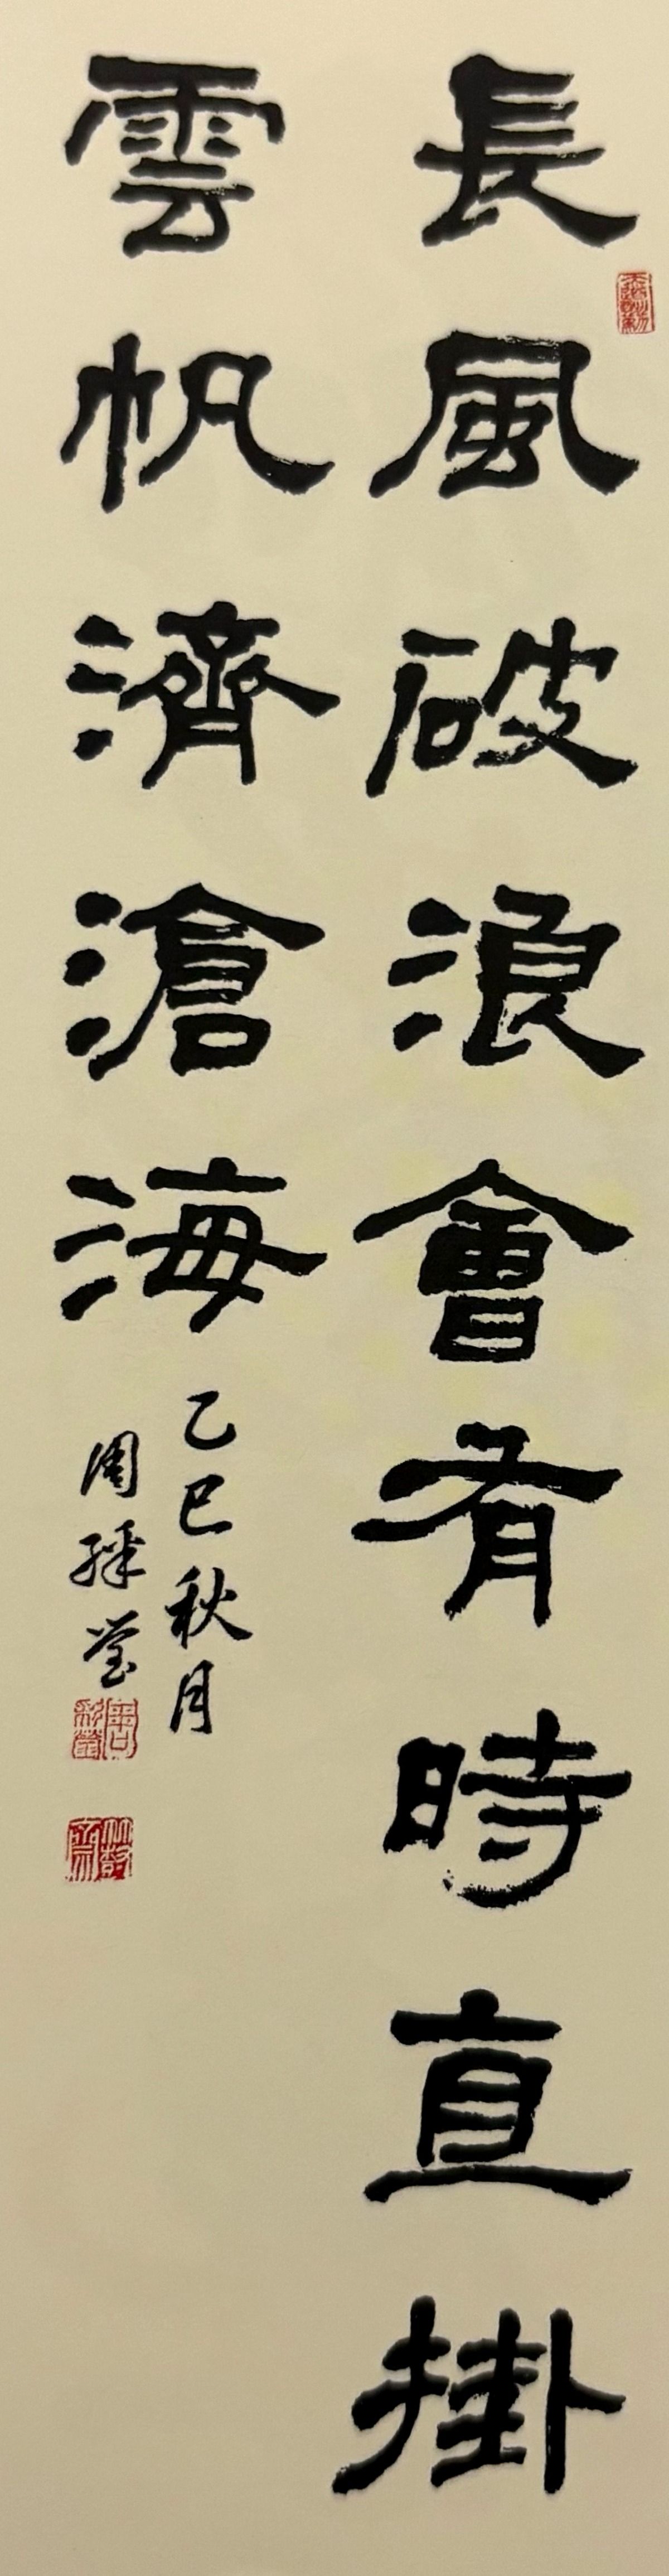 長風破浪會有時直掛
雲帆濟滄海
乙巳秋月
周綵瑩
周綵瑩